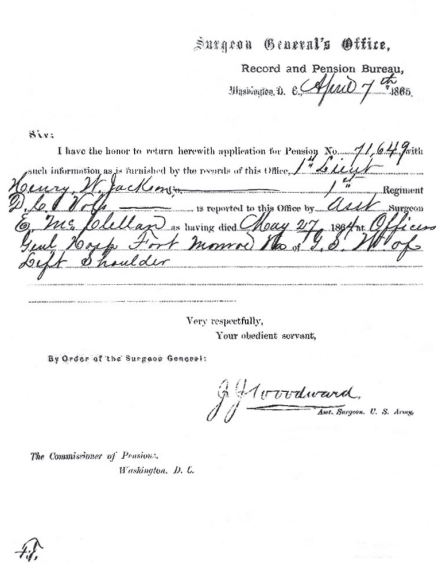 Surgeon General's Office,
Record and Pension Bureau,
Washington, D. C., April 7th 1865.
Sir:
I have the honor to return herewith application for Pension No. 71,649 with
such information as is furnished by the records of this Office. 1st Lieut
Henry W. Jackson, 1st Regiment
D.C. Vols is reported to this Office by Asst Surgeon
E. Mc Clellan as having died May 27 1864 at Officers
Genl Hosp Fort Monroe Va of G. S. W. of
Left Shoulder
Very respectfully,
Your obedient servant,
By Order of the Surgeon General:
J J Woodward.
Asst. Surgeon, U. S. Army.
The Commissioner of Pensions,
Washington, D. C.